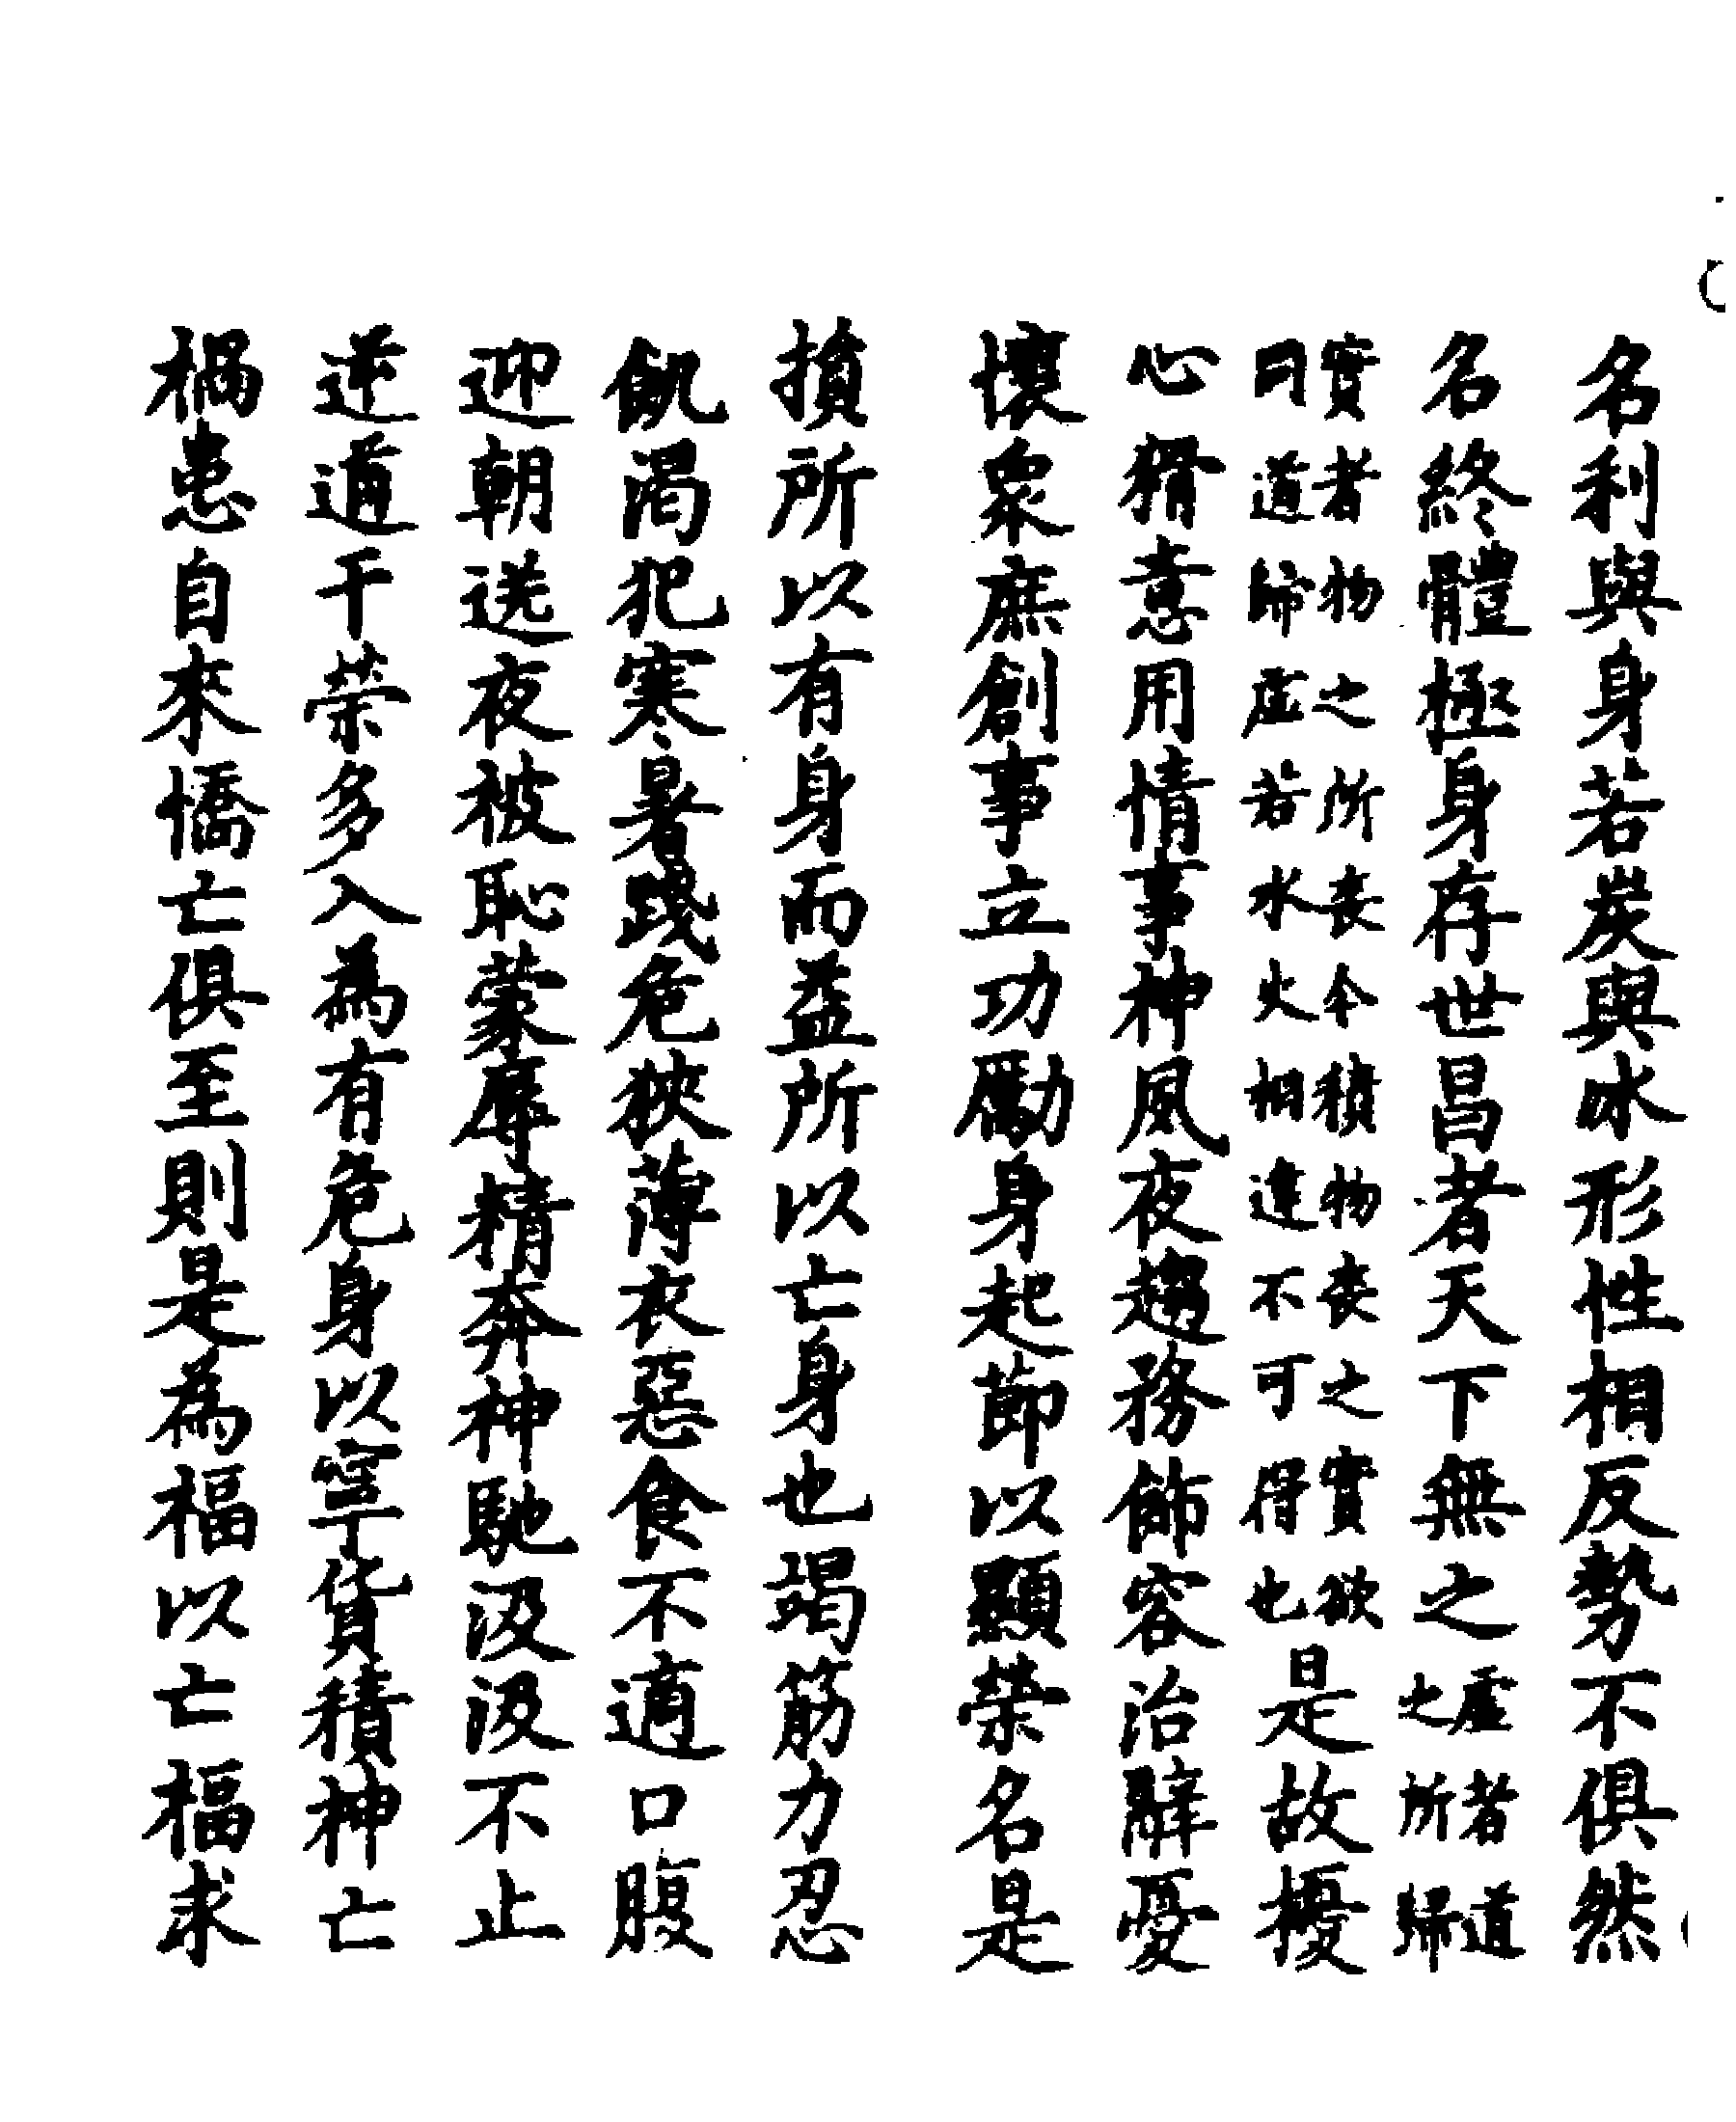 名利與身若炭與冰形性相反勢不俱然
名終體極身存世昌者天下無之虛者道之所歸
實者物之所喪今積物喪之實欲曰道歸虛若水火相違不可得也是故擾
心猾意用情事神夙夜趨務飾容治辭憂
懷衆庶創事立功勵身起節以顯榮名是
損所以有身而益所以亡身也竭筋力忍
飢渴犯寒暑踐危狹薄衣惡食不適口腹
迎朝送夜被恥蒙辱精奔神馳汲汲不止
逆道干榮多入為有危身以寧貨積神亡
禍患自來憍亡俱至則是為福以亡福求